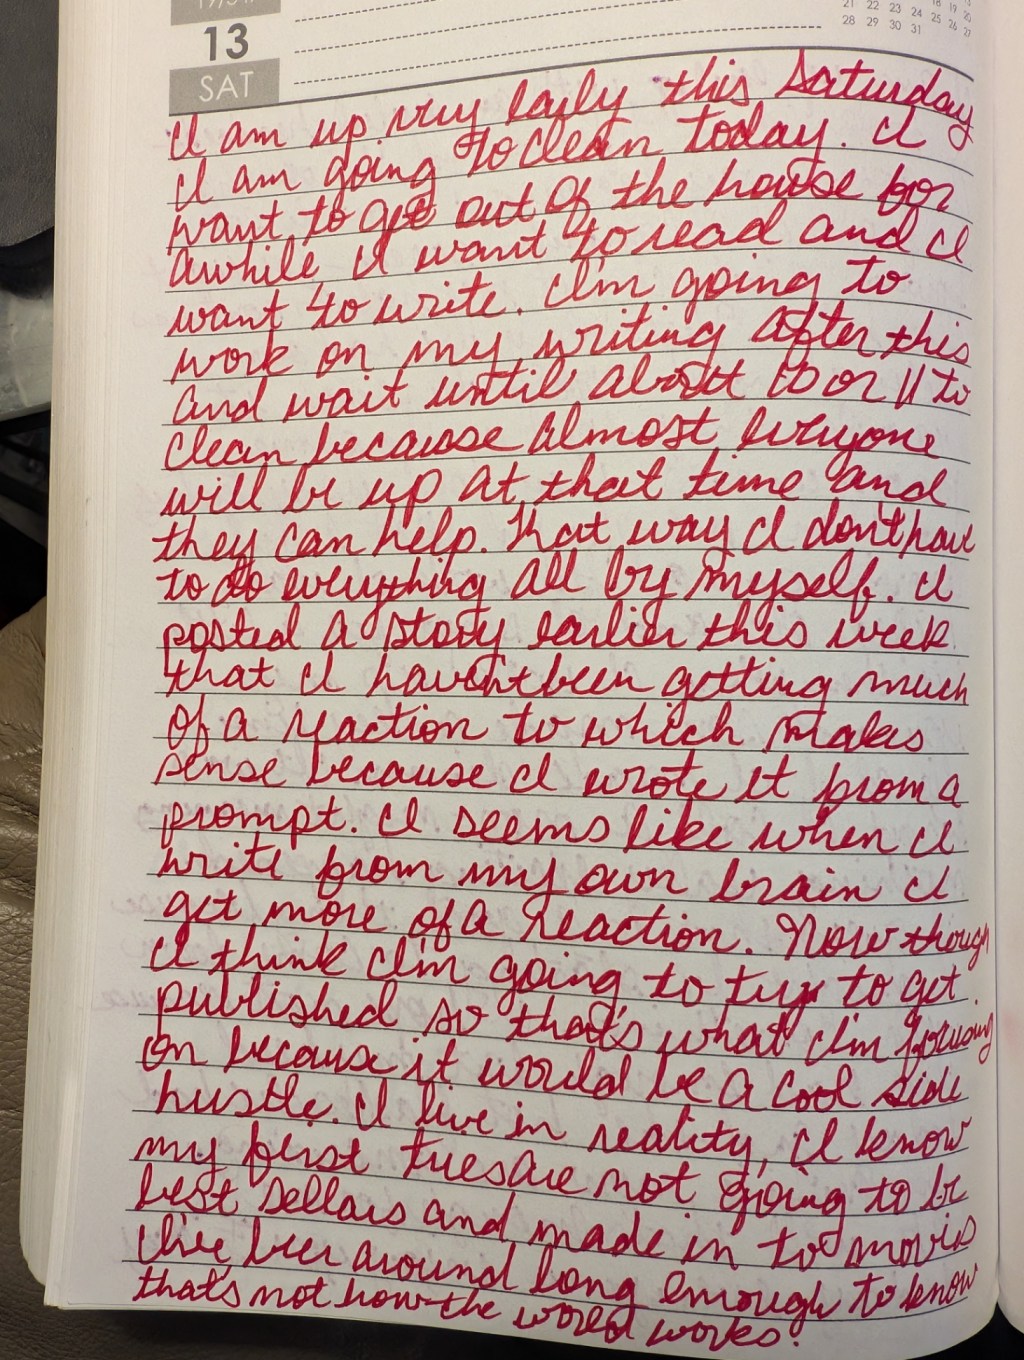 13
SAT
21 22 23 24 25 26 27
28 29 30 31
I am up very early this Saturday
I am going to clean today. I
want to get out of the house for
awhile I want to read and I
want to write. I'm going to
work on my writing after this
and wait until about 10 or 11 to
clean because almost everyone
will be up at that time and
they can help. That way I don't have
to do everything all by myself. I
posted a story earlier this week
that I haven't been getting much
of a reaction to which makes
sense because I wrote it from a
prompt. I seems like when I
write from my own brain I
get more of a reaction. Now though
I think I'm going to try to get
published so that's what I'm focusing
on because it would be a cool side
hustle. I live in reality, I know
my first tries are not going to be
best sellars and made in to movies
I've been around long enough to know
that's not how the world works.